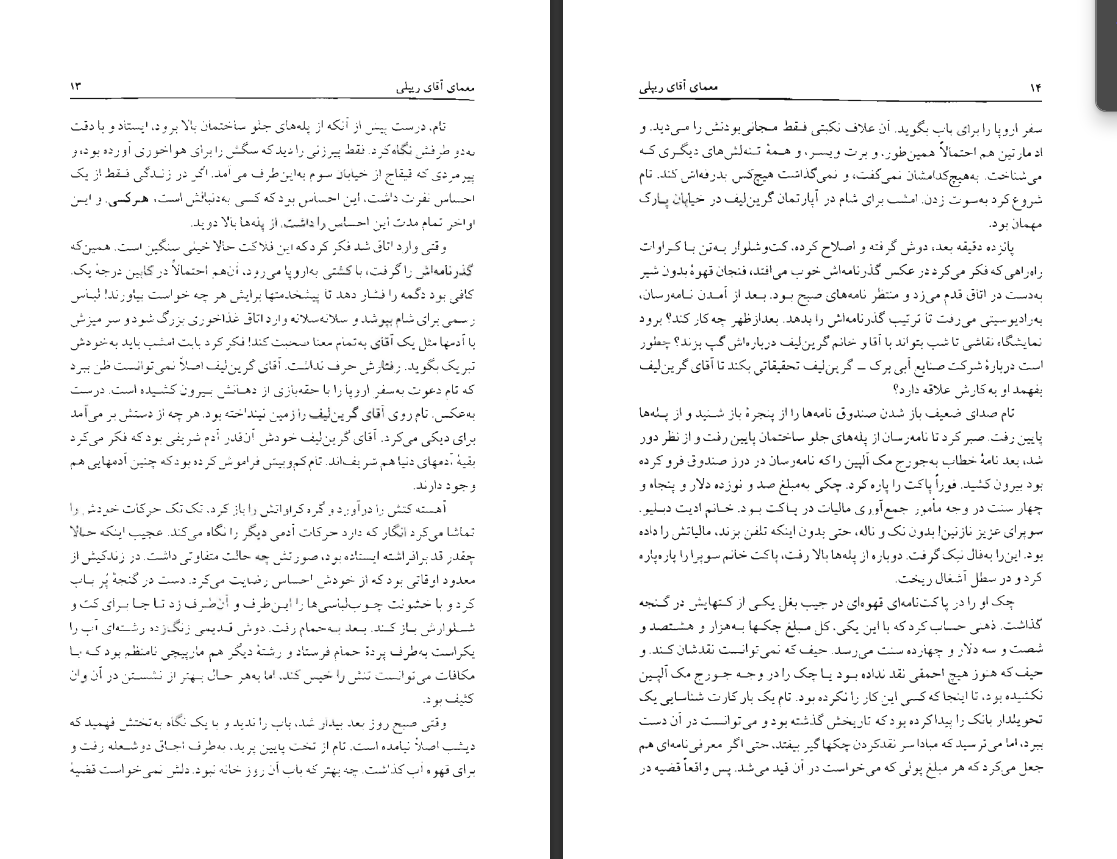 معمای آقای ریپلی ۱۳
تام، درست پیش از آنکه از پله‌های جلو ساختمان بالا برود، ایستاد و با دقت
به‌دو طرفش نگاه کرد. فقط پیرزنی را دید که سگش را برای هواخوری آورده بود، و
پیرمردی که قیقاج از خیابان سوم به‌این‌طرف می‌آمد. اگر در زندگی فقط از یک
احساس نفرت داشت، این احساس بود که کسی به‌دنبالش است، هرکسی. و این
اواخر تمام مدت این احساس را داشت. از پله‌ها بالا دوید.
وقتی وارد اتاق شد فکر کرد که این فلاکت حالا خیلی سنگین است. همین‌که
گذرنامه‌اش را گرفت، با کشتی به‌اروپا می‌رود، آن‌هم احتمالاً در کابین درجهٔ یک.
کافی بود دگمه را فشار دهد تا پیشخدمتها برایش هر چه خواست بیاورند! لباس
رسمی برای شام بپوشد و سلانه‌سلانه وارد اتاق غذاخوری بزرگ شود و سر میزش
با آدمها مثل یک آقای به‌تمام معنا صحبت کند! فکر کرد بابت امشب باید به‌خودش
تبریک بگوید. رفتارش حرف نداشت. آقای گرین‌لیف اصلاً نمی‌توانست ظن ببرد
که تام دعوت به‌سفر اروپا را با حقه‌بازی از دهانش بیرون کشیده است. درست
به‌عکس. تام روی آقای گرین‌لیف را زمین نینداخته بود. هر چه از دستش بر می‌آمد
برای دیکی می‌کرد. آقای گرین‌لیف خودش آن‌قدر آدم شریفی بود که فکر می‌کرد
بقیهٔ آدمهای دنیا هم شریف‌اند. تام کم‌وبیش فراموش کرده بود که چنین آدمهایی هم
وجود دارند.
آهسته کتش را درآورد و گره کراواتش را باز کرد، تک تک حرکات خودش را
تماشا می‌کرد انگار که دارد حرکات آدمی دیگر را نگاه می‌کند. عجیب اینکه حالا
چقدر قد برافراشته ایستاده بود، صورتش چه حالت متفاوتی داشت. در زندگیش از
معدود اوقاتی بود که از خودش احساس رضایت می‌کرد. دست در گنجهٔ پُر باب
کرد و با خشونت چوب‌لباسی‌ها را این‌طرف و آن‌طرف زد تا جا برای کت و
شلوارش باز کند. بعد به‌حمام رفت. دوش قدیمی زنگ‌زده رشته‌ای آب را
یکراست به‌طرف پردهٔ حمام فرستاد و رشتهٔ دیگر هم مارپیچی نامنظم بود که با
مکافات می‌توانست تنش را خیس کند، اما به‌هر حال بهتر از نشستن در آن وان
کثیف بود.
وقتی صبح روز بعد بیدار شد، باب را ندید و با یک نگاه به‌تختش فهمید که
دیشب اصلاً نیامده است. تام از تخت پایین پرید، به‌طرف اجاق دوشعله رفت و
برای قهوه آب گذاشت. چه بهتر که باب آن روز خانه نبود. دلش نمی‌خواست قضیهٔ
۱۴ معمای آقای ریپلی
سفر اروپا را برای باب بگوید. آن علاف نکبتی فقط مجانی‌بودنش را می‌دید. و
اد مارتین هم احتمالاً همین‌طور، و برت ویسر، و همهٔ تنه‌لش‌های دیگری که
می‌شناخت. به‌هیچ‌کدامشان نمی‌گفت، و نمی‌گذاشت هیچ‌کس بدرقه‌اش کند. تام
شروع کرد به‌سوت زدن. امشب برای شام در آپارتمان گرین‌لیف در خیابان پارک
مهمان بود.
پانزده دقیقه بعد، دوش گرفته و اصلاح کرده، کت‌وشلوار به‌تن با کراوات
راه‌راهی که فکر می‌کرد در عکس گذرنامه‌اش خوب می‌افتد، فنجان قهوهٔ بدون شیر
به‌دست در اتاق قدم می‌زد و منتظر نامه‌های صبح بود. بعد از آمدن نامه‌رسان،
به‌رادیوسیتی می‌رفت تا ترتیب گذرنامه‌اش را بدهد. بعدازظهر چه کار کند؟ برود
نمایشگاه نقاشی تا شب بتواند با آقا و خانم گرین‌لیف درباره‌اش گپ بزند؟ چطور
است دربارهٔ شرکت صنایع آبی برک ــ گرین‌لیف تحقیقاتی بکند تا آقای گرین‌لیف
بفهمد او به‌کارش علاقه دارد؟
تام صدای ضعیف باز شدن صندوق نامه‌ها را از پنجرهٔ باز شنید و از پله‌ها
پایین رفت. صبر کرد تا نامه‌رسان از پله‌های جلو ساختمان پایین رفت و از نظر دور
شد، بعد نامهٔ خطاب به‌جورج مک آلپین را که نامه‌رسان در درز صندوق فرو کرده
بود بیرون کشید. فوراً پاکت را پاره کرد. چکی به‌مبلغ صد و نوزده دلار و پنجاه و
چهار سنت در وجه مأمور جمع‌آوری مالیات در پاکت بود. خانم ادیت دبلیو.
سوپرای عزیز نازنین! بدون نک و ناله، حتی بدون اینکه تلفن بزند، مالیاتش را داده
بود. این‌را به‌فال نیک گرفت. دوباره از پله‌ها بالا رفت، پاکت خانم سوپرا را پاره‌پاره
کرد و در سطل آشغال ریخت.
چک او را در پاکت‌نامه‌ای قهوه‌ای در جیب بغل یکی از کتهایش در گنجه
گذاشت. ذهنی حساب کرد که با این یکی، کل مبلغ چکها به‌هزار و هشتصد و
شصت و سه دلار و چهارده سنت می‌رسد. حیف که نمی‌توانست نقدشان کند. و
حیف که هنوز هیچ احمقی نقد نداده بود یا چک را در وجه جورج مک آلپین
نکشیده بود، تا اینجا که کسی این کار را نکرده بود. تام یک بار کارت شناسایی یک
تحویلدار بانک را پیدا کرده بود که تاریخش گذشته بود و می‌توانست در آن دست
ببرد، اما می‌ترسید که مبادا سر نقدکردن چکها گیر بیفتد، حتی اگر معرفی‌نامه‌ای هم
جعل می‌کرد که هر مبلغ پولی که می‌خواست در آن قید می‌شد. پس واقعاً قضیه در